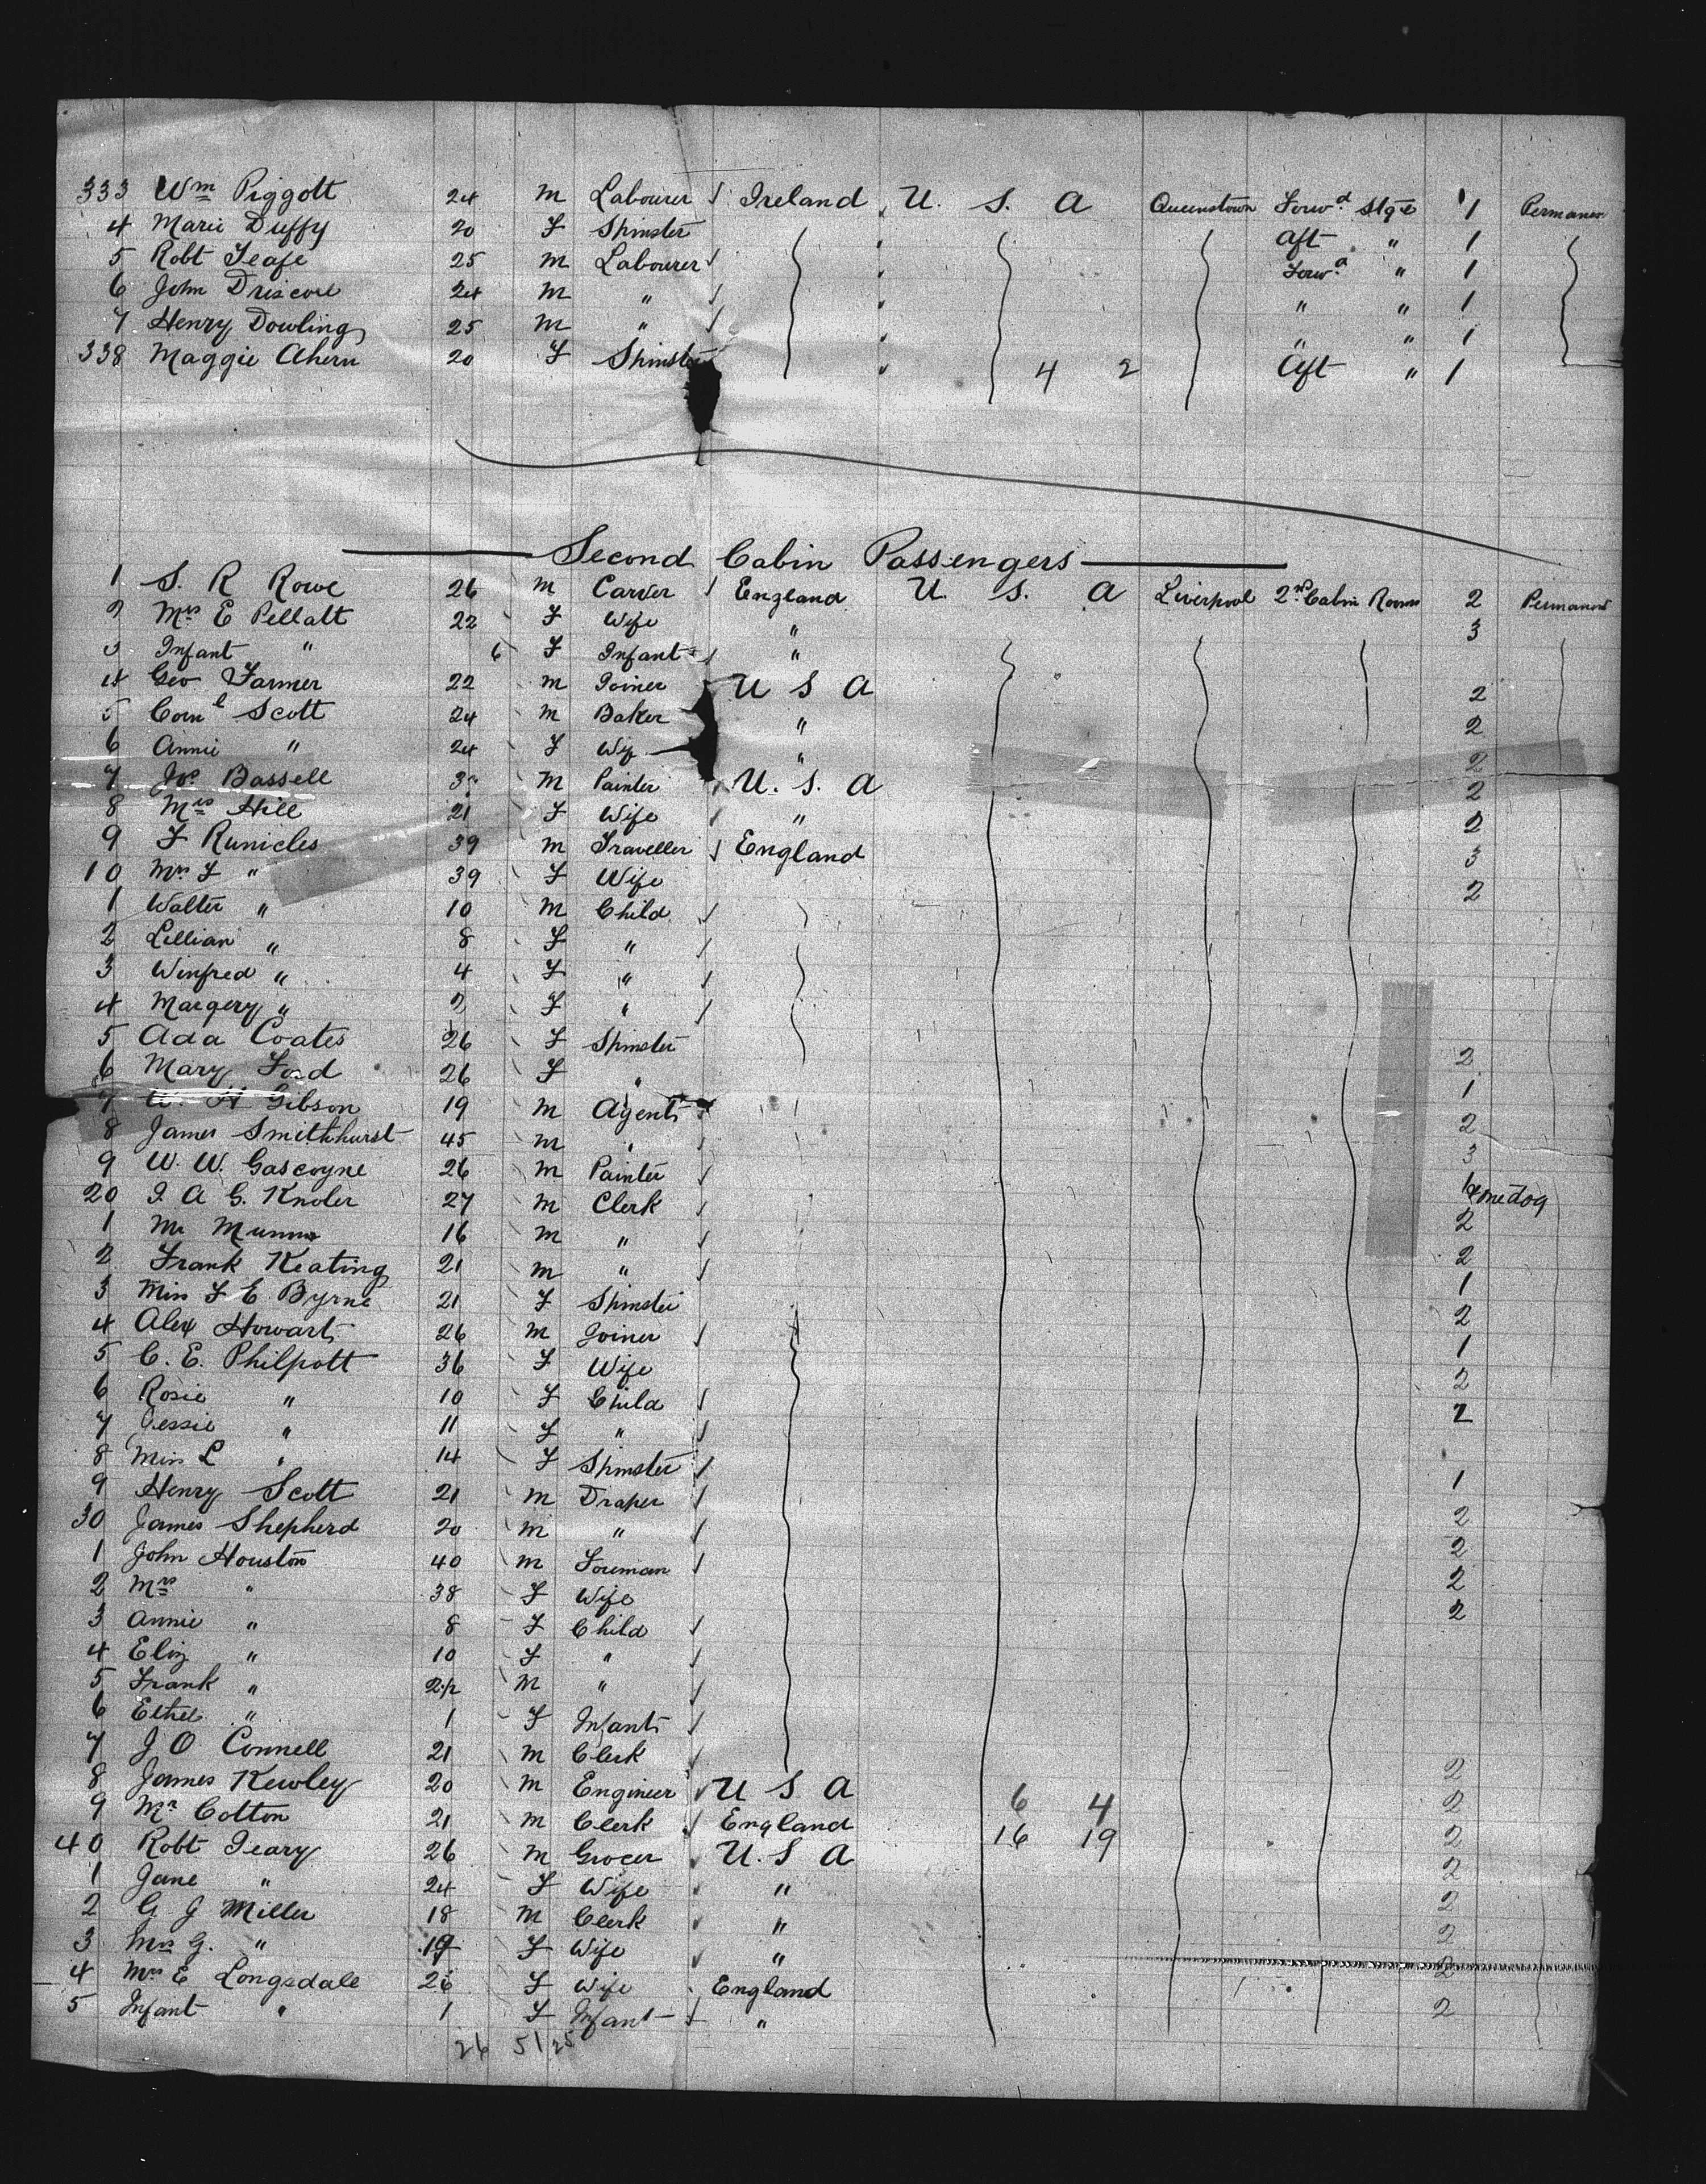 333 Wm Piggott 24 m Labourer Ireland U. S. A Queenstown Forwd Stge 1 Permanen
4 Marie Duffy 20 F Spinster Aft " 1
5 Robt Teafe 25 m Labourer Forwd " 1
6 John Driscoll 24 m " " " 1
7 Henry Dowling 25 m " " " 1
338 Maggie Ahern 20 F Spinster 4 2 Aft " 1
Second Cabin Passengers
1 S. R Rowe 26 m Carver England U. S. A Liverpool 2nd Cabin Rooms 2 Permanent
2 Mrs E Pellatt 22 F Wife " 3
3 Infant " 6 F Infant "
4 Geo Farmer 22 m Joiner U S A 2
5 Cornl Scott 24 m Baker " 2
6 Annie " 24 F Wife " 2
7 Jos Bassell m Painter U. S. A 2
8 Mrs Hill 21 F Wife " 2
9 F Runicles 39 m Traveller England 3
10 Mrs F " 39 F Wife 2
1 Walter " 10 m Child
2 Lillian " 8 F "
3 Winfred " 4 F "
4 Margery " 2 F "
5 Ada Coates 26 F Spinster 2
6 Mary Ford 26 F " 1
7 W. H Gibson 19 m Agent 2
8 James Smithhurst 45 m " 3
9 W. W. Gascoyne 26 m Painter 1 & one dog
20 J. A G. Knoler 27 m Clerk 2
1 Mr Munro 16 m " 2
2 Frank Keating 21 m " 1
3 Miss F E Byrne 21 F Spinster 2
4 Alex Howarth 26 m Joiner 1
5 C. E. Philpott 36 F Wife 2
6 Rosie " 10 F Child 2
7 Jessie " 11 F "
8 Miss L " 14 F Spinster 1
9 Henry Scott 21 m Draper 2
30 James Shepherd 20 m " 2
1 John Houston 40 m Foreman 2
2 Mrs " 38 F Wife 2
3 Annie " 8 F Child
4 Eliz " 10 F "
5 Frank " m "
6 Ethel " 1 F Infant
7 J O Connell 21 m Clerk 2
8 James Kewley 20 m Engineer U S A 6 4 2
9 Mr Cotton 21 m Clerk England 16 19 2
40 Robt Teary 26 m Grocer U. S A 2
1 Jane " 24 F Wife " 2
2 G J Miller 18 m Clerk " 2
3 Mrs G. " 19 F Wife " 2
4 Mrs E Longsdale 26 F Wife England 2
5 Infant " 1 F Infant "
26 51 25